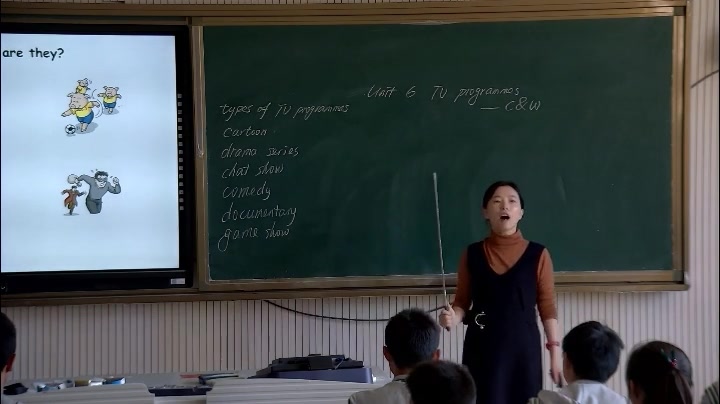 are they?
Unit 6 TV programmes
— C&W
types of TV programmes
cartoon
drama series
chat show
comedy
documentary
game show